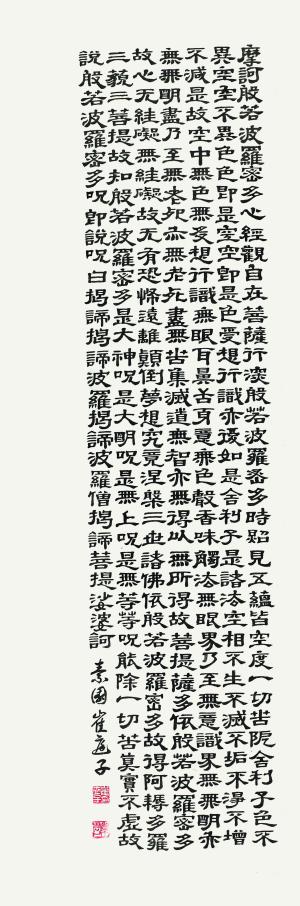 摩訶般若波羅密多心經觀自在菩薩行深般若波羅密多時照見五蘊皆空度一切苦阨舍利子色不
異空空不異色色即是空空即是色受想行識亦復如是舍利子是諸法空相不生不滅不垢不淨不增
不減是故空中無色無受想行識無眼耳鼻舌身意無色聲香味觸法無眼界乃至無意識界無無明亦
無無明盡乃至無老死亦無老死盡無苦集滅道無智亦無得以無所得故菩提薩多依般若波羅密多
故心无絓礙無絓礙故无有恐怖遠離顛倒夢想究竟涅槃三世諸佛依般若波羅密多故得阿耨多羅
三藐三菩提故知般若波羅密多是大神呪是大明呪是無上呪是無等等呪能除一切苦真實不虛故
說般若波羅密多呪即說呪曰揭諦揭諦波羅揭諦波羅僧揭諦菩提娑婆訶 素園崔子